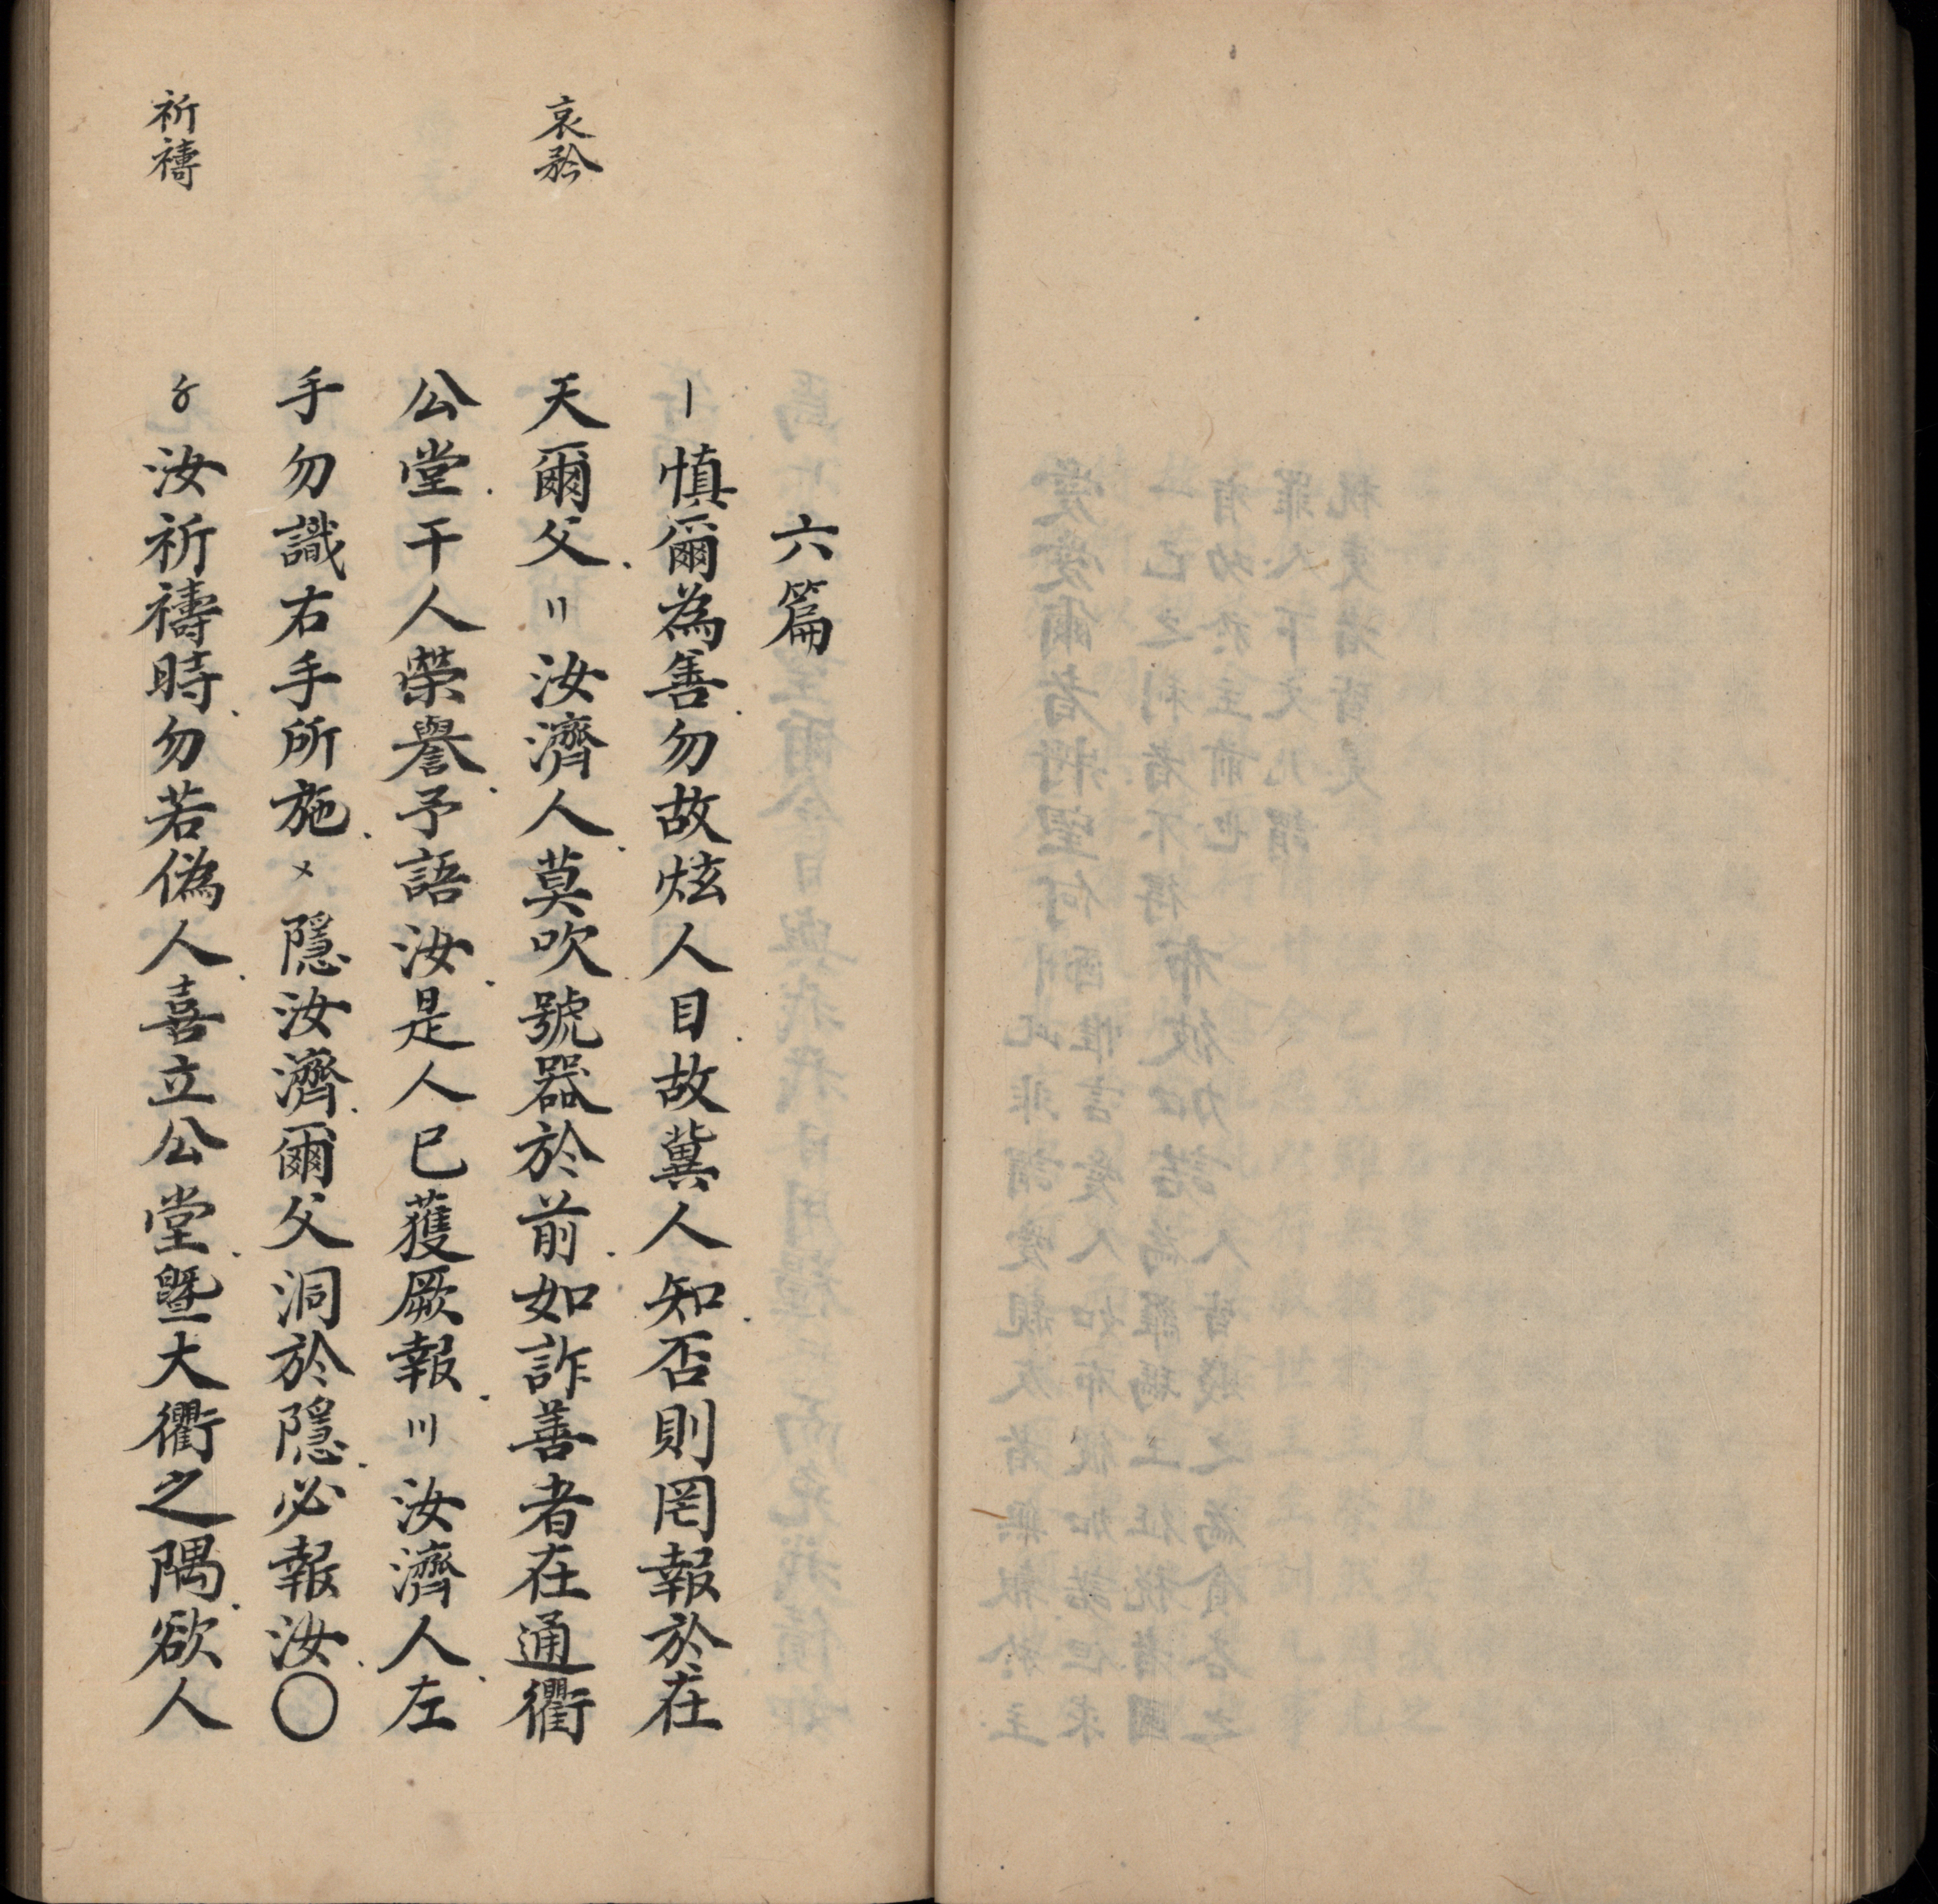 六篇
〡慎爾為善勿故炫人目故冀人知否則罔報於在
哀矜
天爾父〢汝濟人莫吹號器於前如詐善者在通衢
公堂干人榮譽予語汝是人已獲厥報〣汝濟人左
手勿識右手所施〤隱汝濟爾父洞於隱必報汝〇
祈禱
〥汝祈禱時勿若偽人喜立公堂暨大衢之隅欲人